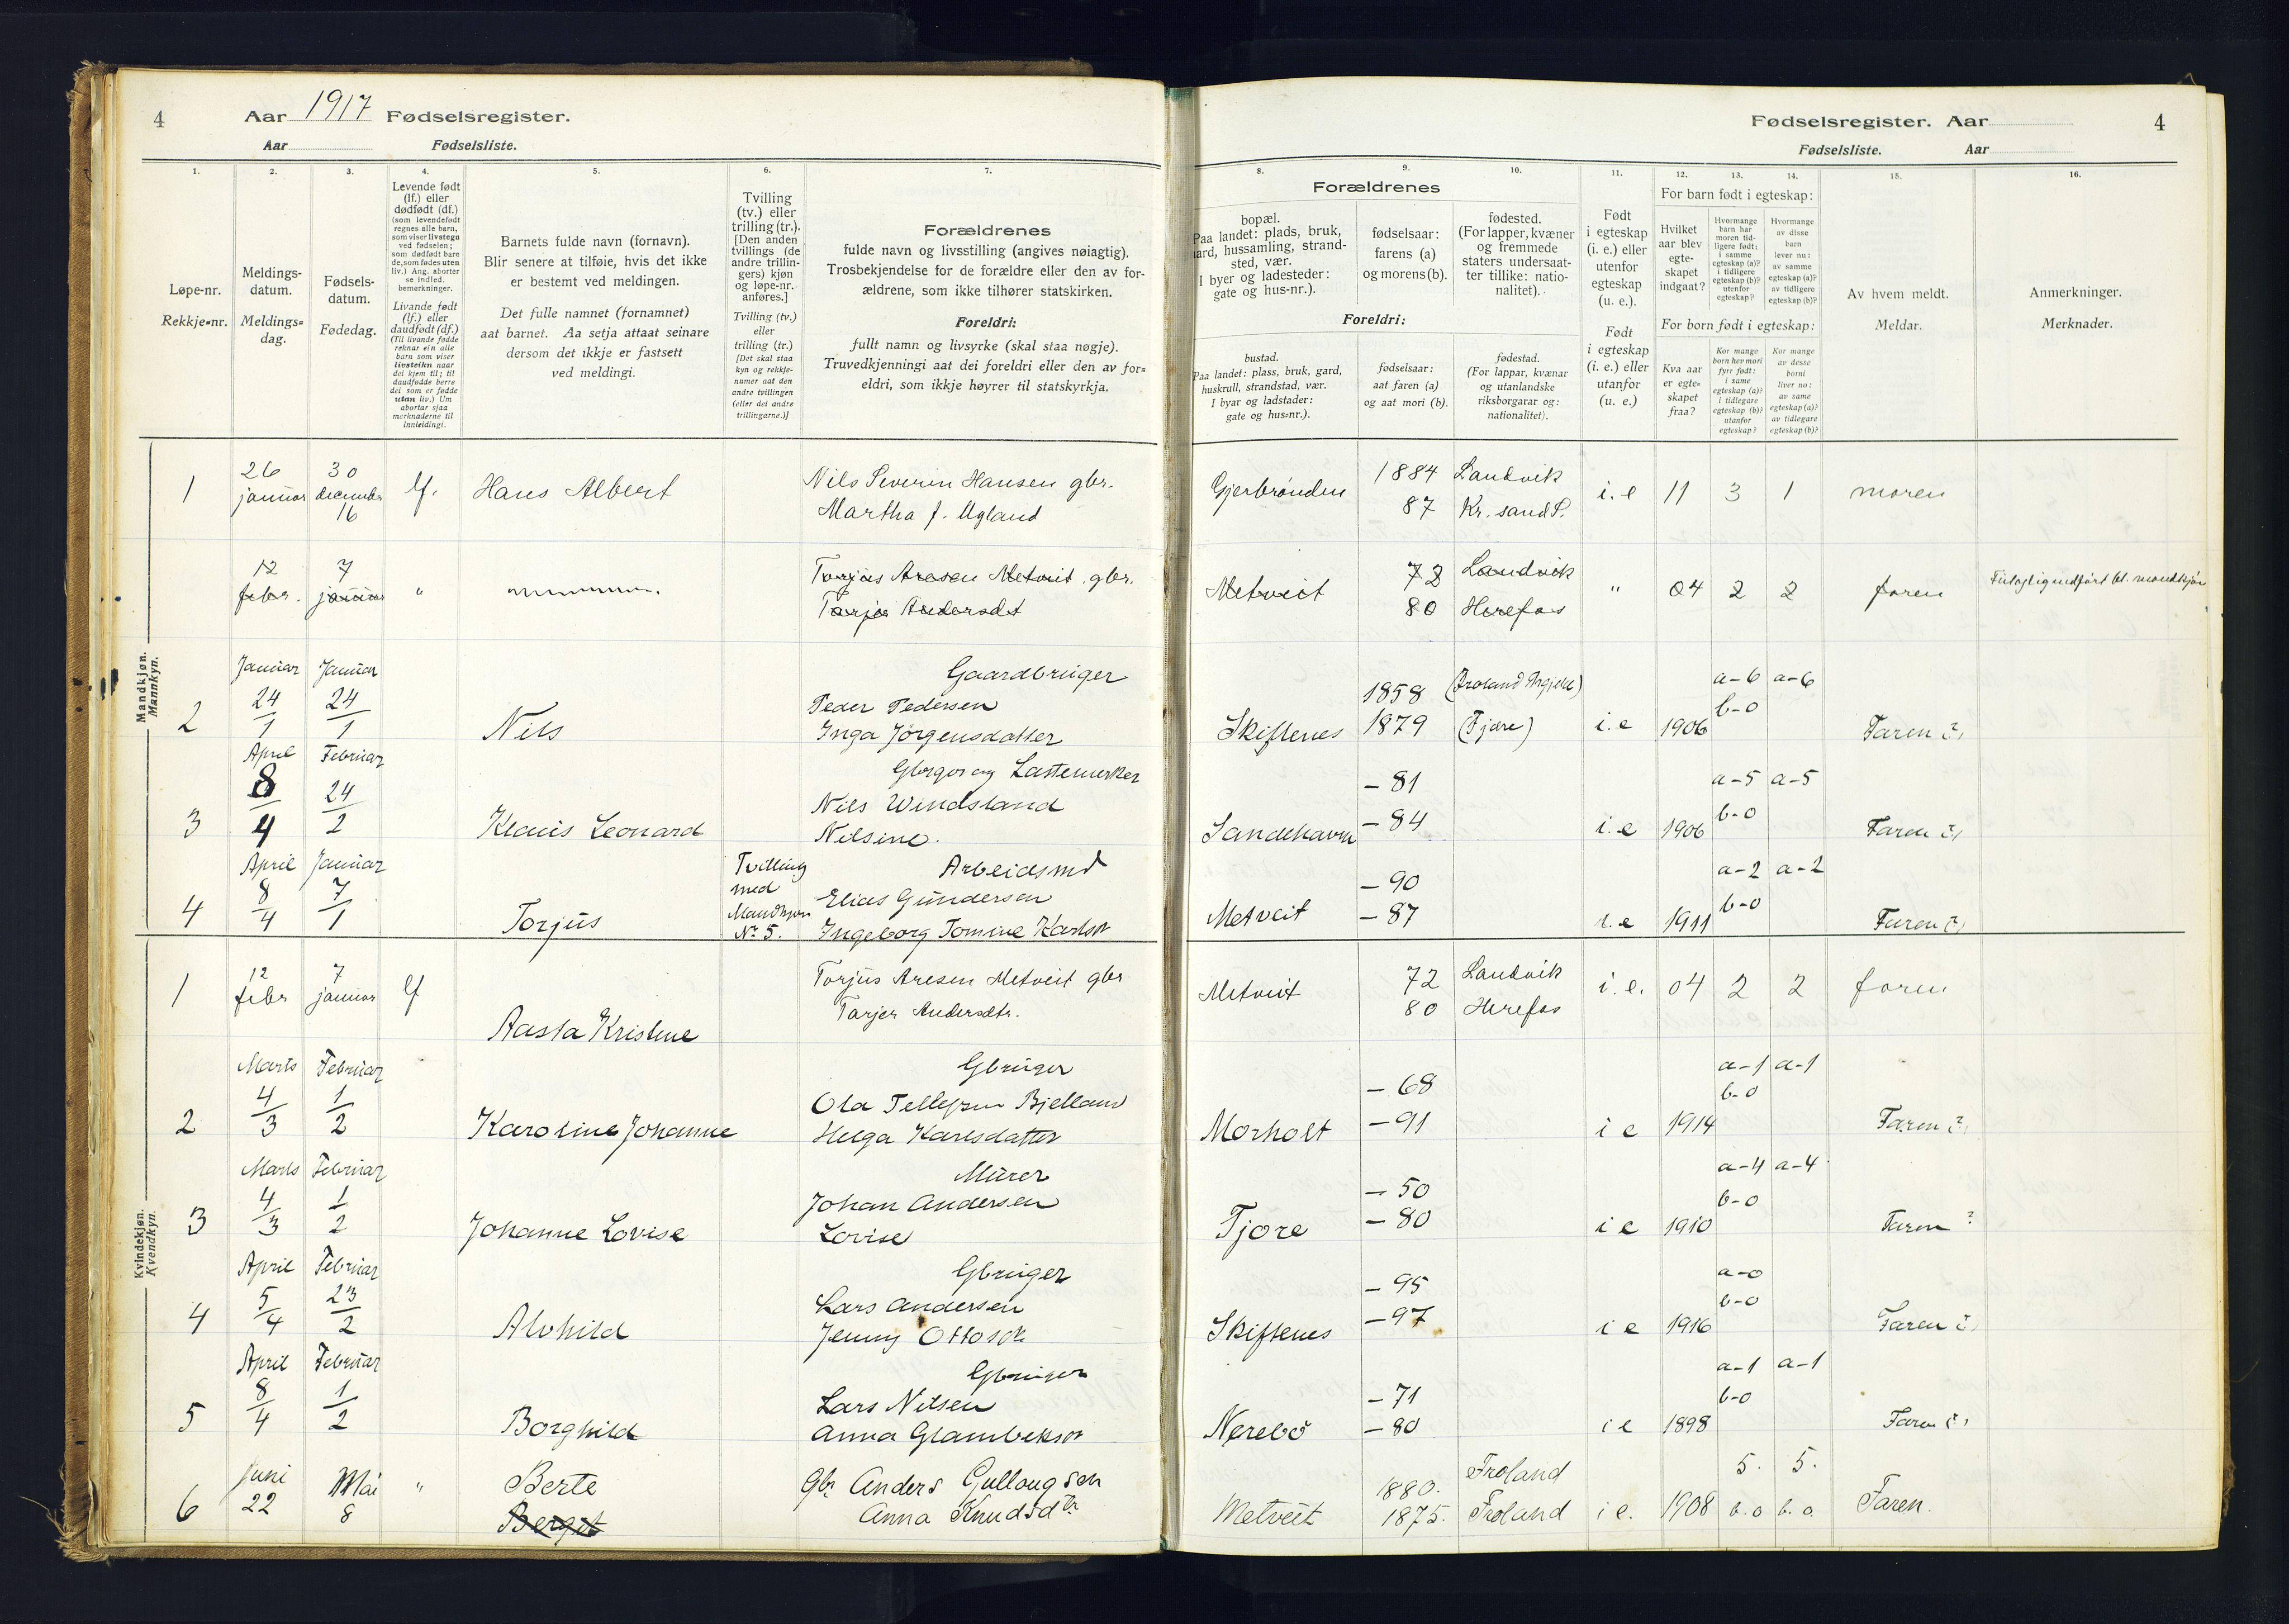 4 Aar 1917 Fødselsregister.
Aar Fødselsliste.
Fødselsregister. Aar 4
Fødselsliste. Aar
1. 2. 3. 4. 5. 6. 7.
Løpe-nr.
Rekkje=nr.
Meldings-
datum.
Meldings=
dag.
Fødsels-
datum.
Fødedag.
Levende født
(lf.) eller
dødfødt (df.)
(som levendefødt
regnes alle barn,
som viser livstegn
ved fødselen;
som dødfødt bare
de, som fødes uten
liv.) Ang. aborter
se indled.
bemerkninger.
Livande født
(lf.) eller
daudfødt (df.)
(Til livande fødde
reknar ein alle
barn som viser
livsteikn naar
dei kjem til; til
daudfødde berre
dei som er fødde
utan liv.) Um
abortar sjaa
merknaderne til
innleidingi.
Barnets fulde navn (fornavn).
Blir senere at tilføie, hvis det ikke
er bestemt ved meldingen.
Det fulle namnet (fornamnet)
aat barnet. Aa setja attaat seinare
dersom det ikkje er fastsett
ved meldingi.
Tvilling
(tv.) eller
trilling (tr.).
[Den anden
tvillings (de
andre trillin-
gers) kjøn
og løpe-nr.
anføres.]
Tvilling (tv.)
eller
trilling (tr.)
[Det skal staa
kyn og rekkje-
numer aat den
andre tvillingen
(eller dei andre
trillingarne.)]
Forældrenes
fulde navn og livsstilling (angives nøiagtig).
Trosbekjendelse for de forældre eller den av for-
ældrene, som ikke tilhører statskirken.
Foreldri:
fullt namn og livsyrke (skal staa nøgje).
Truvedkjenningi aat dei foreldri eller den av for=
eldri, som ikkje høyrer til statskyrkja.
8. 9. 10. 11. 12. 13. 14. 15. 16.
Forældrenes
bopæl.
Paa landet: plads, bruk,
gaard, hussamling, strand-
sted, vær.
I byer og ladesteder:
gate og hus-nr.).
fødselsaar:
farens (a)
og morens (b).
fødested.
(For lapper, kvæner
og fremmede
staters undersaat-
ter tillike: natio-
nalitet).
Foreldri:
bustad.
Paa landet: plass, bruk, gard,
huskrull, strandstad, vær.
I byar og ladstader:
gate og hus=nr.).
fødselsaar:
aat faren (a)
og aat mori (b).
fødestad.
(For lappar, kvænar
og utanlandske
riksborgarar og:
nationalitet).
Født
i egteskap
(i. e.) eller
utenfor
egteskap
(u. e.).
Født
i egteskap
(i. e.) eller
utanfor
(u. e.)
For barn født i egteskap:
Hvilket
aar blev
egte-
skapet
indgaat?
Hvormange
barn har
moren tid-
ligere født:
i samme
egteskap (a)?
i tidligere
egteskap (b)?
utenfor
egteskap?
Hvormange
av disse
barn
lever nu:
av samme
egteskap (a)?
av tidligere
egteskap (b)?
For born født i egteskap:
Kva aar
er egte=
skapet
fraa?
Kor mange
born hev mori
fyrr født:
i same
egteskap (a)?
i tidlegare
egteskap (b)?
utanfor
egteskap?
Kor mange
av desse
borni
liver no:
av same
egteskap (a)?
av tidlegare
egteskap (b)?
Av hvem meldt.
Meldar.
Anmerkninger.
Merknader.
Mandkjøn.
Mannkyn.
1 26 januar 30 december 16 lf. Hans Albert Nils Severin Hansen gbr.
Martha f. Ugland
Gjerbrønden 1884 Landvik i. e 11 3 1 moren
87 Kr. sand S.
12 febr. 7 januar " Torjus Aresen Metveit gbr.
Tarjer Andersdt
Metveit 72 Landvik " 04 2 2 faren
80 Herefos
Januar Januar Gaardbruger
24/1 24/1 Peder Pedersen
2 Nils Inga Jørgensdatter
1858
Skiftenes 1879 (Fjære) i. e 1906 a-6 a-6 b-0 Faren
April Februar
8/4 24/2 Nils Windsland
3 Klaus Leonard Nilsine.
- 81 a-5 a-5
Sandehavn - 84 i. e 1906 b-0 Faren
April Januar Tvilling Arbeidsmd
8/4 7/1 med Elias Gundersen
4 Torjus Mandkjøn Nº 5. Ingeborg Tomine
- 90 a-2 a-2
Metveit - 87 i. e 1911 b-0 Faren
Kvindekjøn.
Kvendkyn.
1 12 febr 7 januar lf Torjus Aresen Metveit gbr
Aasta Kristine Tarjer Andersdtr.
Metveit 72 Landvik i. e. 04 2 2 faren
80 Herefos
Marts Februar Gbruger
4/3 1/2 Ola Tellefsen Bjelland
2 Karoline Johanne Helga Karlsdatter
- 68 a-1 a-1
Morholt - 91 i e 1914 b-0 Faren
Marts Februar Murer
4/3 1/2 Johan Andersen
3 Johanne Lovise Lovise
- 50 a-4 a-4
Tjore - 80 i e 1910 b-0 Faren ?
April Februar Gbruger
5/4 23/2 Lars Andersen
4 Alvhild Jenny
- 95 a-0
Skiftenes - 97 i e 1916 b-0 Faren
April Februar Gbruger
8/4 1/2 Lars Nilsen
5 Borghild Anna
- 71 a-1 a-1
Nerebø - 80 i e 1898 b-0 Faren
6 Juni 22 Mai 8 " Berte Gbr Anders Gullougsen
Berget Anna Knudsdtr
1880. Froland 5. 5.
Metveit 1875. Froland i e. 1908 b. o b. o. Faren.